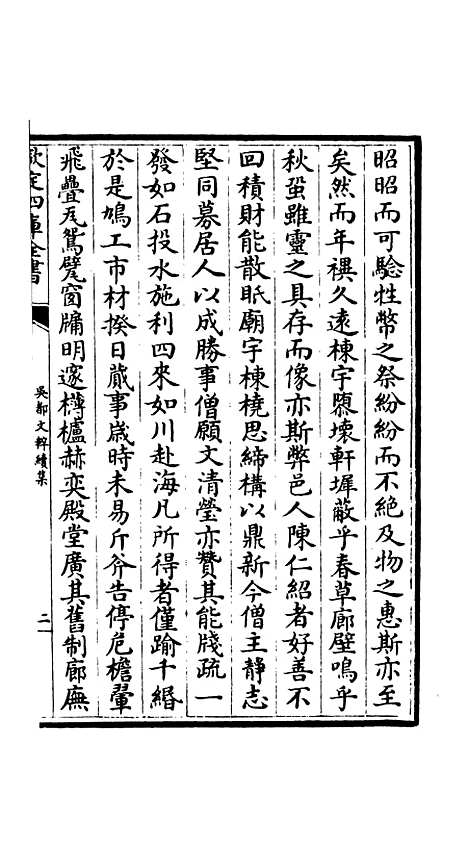 昭昭而可驗牲幣之祭紛紛而不絶及物之惠斯亦至
矣然而年禩久遠棟宇隳壊軒墀蔽乎春草廊壁鳴乎
秋蛩雖靈之具存而像亦斯弊邑人陳仁紹者好善不
回積財能散眂廟宇棟橈思締構以鼎新今僧主靜志
堅同募居人以成勝事僧願文清瑩亦贊其能牋疏一
發如石投水施利四來如川赴海凡所得者僅踰千緡
於是鳩工市材揆日蕆事嵗時未易斤斧告停危檐翬
飛疊瓦鴛甃窗牖明邃欂櫨赫奕殿堂廣其舊制廊廡
欽定四庫全書
吳都文粹續集
二